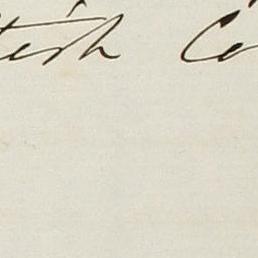 tish Co